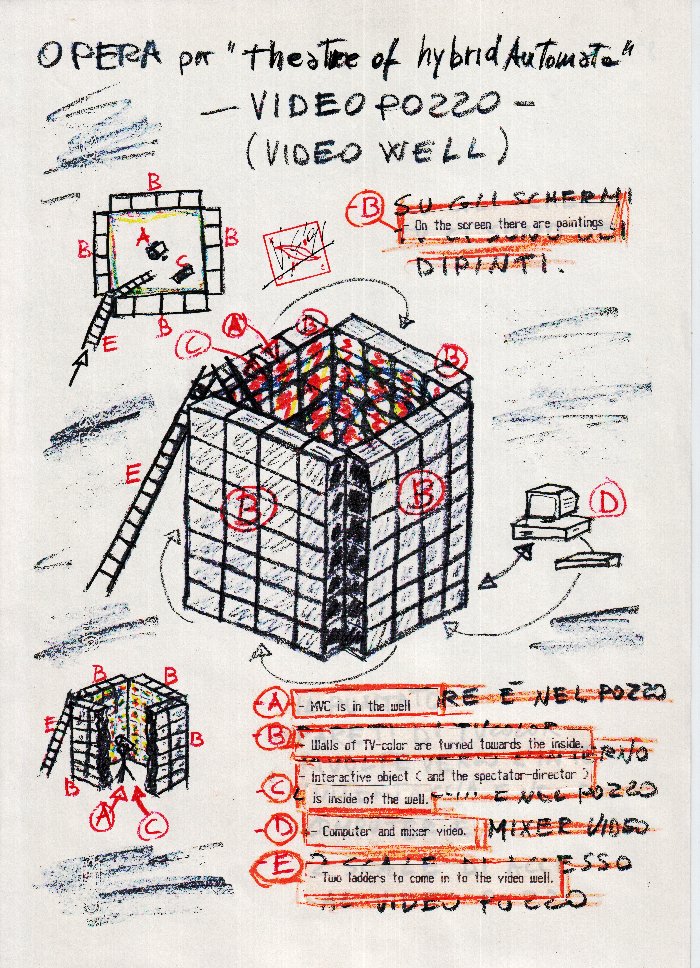 OPERA per "theatre of hybrid Automata"
- VIDEOPOZZO -
(VIDEO WELL)
B
B
A
B
C
B
E
B
SU GLI SCHERMI
- On the screen there are paintings
DIPINTI.
A
B
C
B
E
B
B
D
B
B
E
B
B
A
C
A
- MVC is in the well
RE È NEL POZZO
B
- Walls of TV-color are turned towards the inside.
C
- Interactive object ( and the spectator-director )
is inside of the well.
E NEL POZZO
D
- Computer and mixer video.
MIXER VIDEO
E
- Two ladders to come in to the video well.
VIDEO POZZO